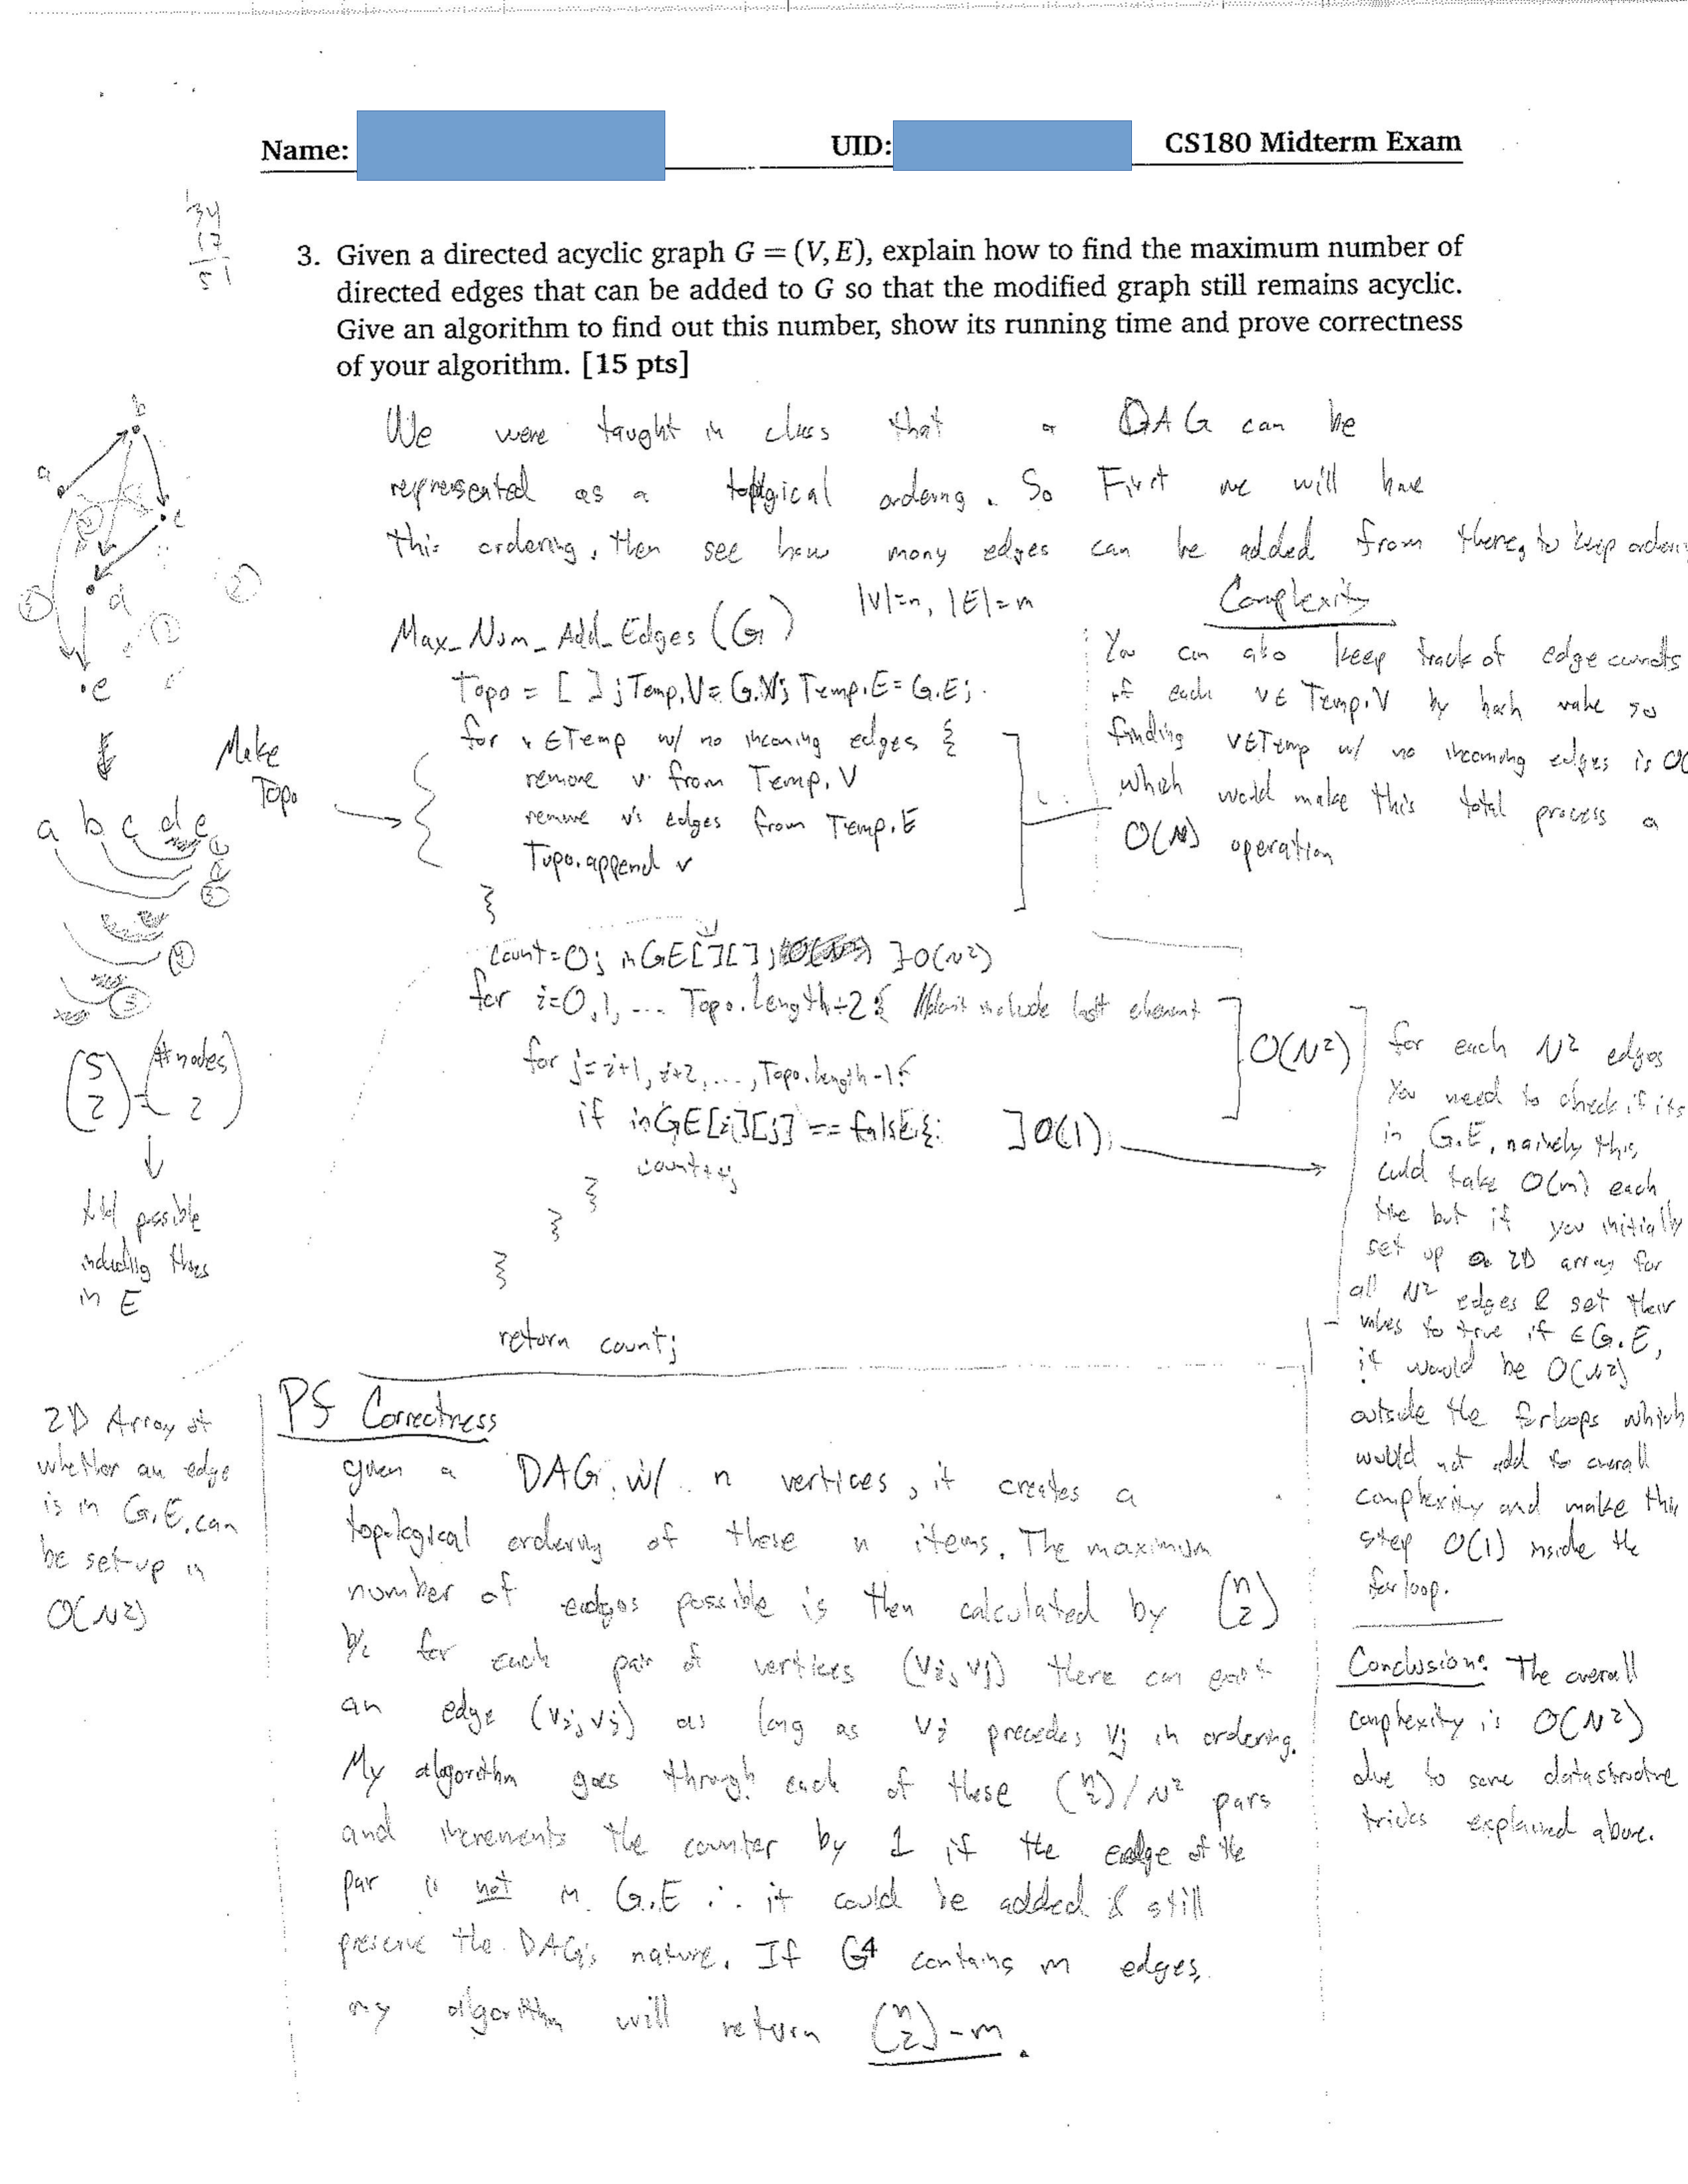 Name:
UID:
CS180 Midterm Exam
34
17
51
3. Given a directed acyclic graph G = (V, E), explain how to find the maximum number of
directed edges that can be added to G so that the modified graph still remains acyclic.
Give an algorithm to find out this number, show its running time and prove correctness
of your algorithm. [15 pts]
We were taught in class that a DAG can be
represented as a topological ordering. So First we will have
this ordering, then see how many edges can be added from there, to keep
|V|=n, |E|=m
Max_Num_Add_Edges (G)
Topo = [ ]; Temp.V = G.V; Temp.E = G.E;
for v ∈ Temp w/ no incoming edges {
remove v from Temp.V
remove v's edges from Temp.E
Topo.append v
}
count=0; inGE[][]; ] O(N²)
for i=0,1, ... Topo.length-2 { //don't include last element
for j=i+1, i+2, ..., Topo.length-1 {
] O(N²)
if inGE[i][j] == false {
] O(1)
count++;
}
}
}
return count;
Complexity
You can also keep track of edge counts
of each v ∈ Temp.V by hash value so
finding v ∈ Temp w/ no incoming edges is
which would make this total process a
O(N) operation
for each N² edges
You need to check if its
in G.E, naively this,
could take O(m) each
time but if you initially
set up a 2D array for
all N² edges & set their
values to true if ∈ G.E,
it would be O(N²)
outside the forloops which
would not add to overall
complexity and make this
step O(1) inside the
for loop.
Conclusion: The overall
complexity is O(N²)
due to some datastructure
tricks explained above.
a
b
c
d
e
Make
Topo
a b c d e
(5 2) = (#nodes 2)
All possible
including those
in E
2D Array of
whether an edge
is in G.E, can
be set-up in
O(N²)
Pf Correctness
given a DAG w/ n vertices, it creates a
topological ordering of these n items. The maximum
number of edges possible is then calculated by (n 2)
b/c for each pair of vertices (vi, vj) there can exist
an edge (vi, vj) as long as vi precedes vj in ordering.
My algorithm goes through each of these (n 2) / N² pairs
and increments the counter by 1 if the edge of the
pair is not in G.E ∴ it could be added & still
preserve the DAG's nature. If G contains m edges,
my algorithm will return (n 2) - m.